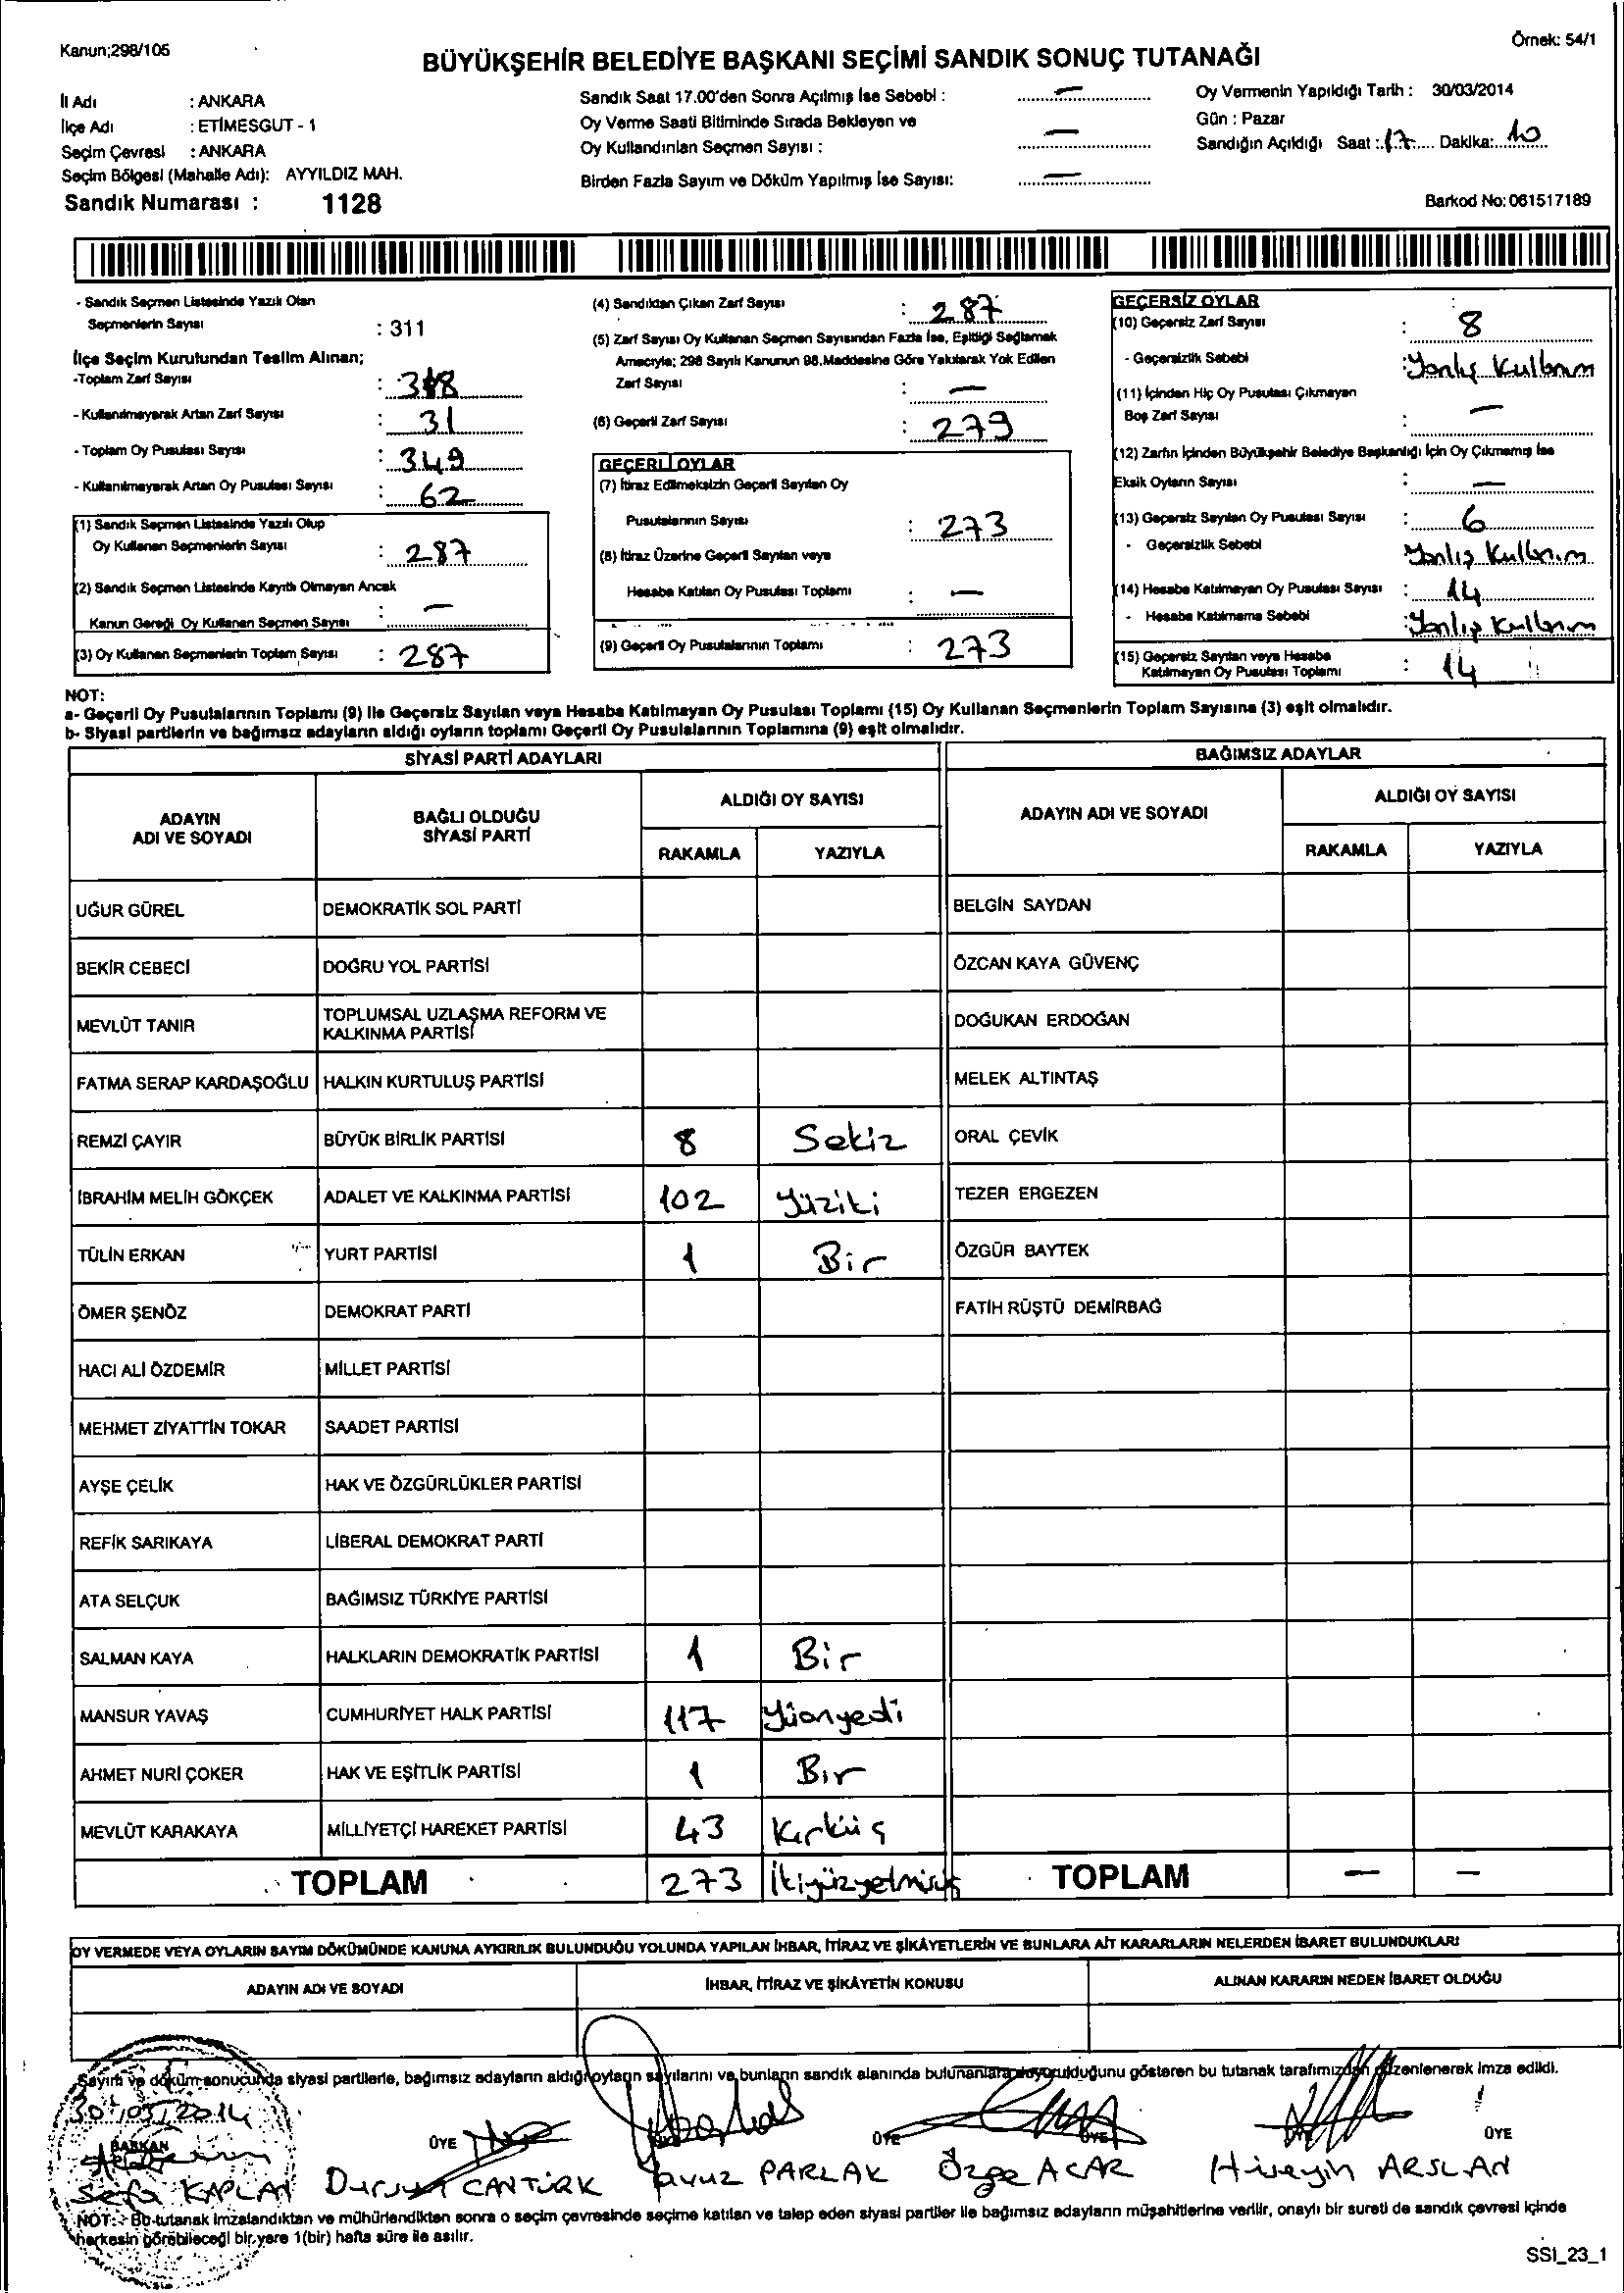 Kanun;298/105
Örnek: 54/1
BÜYÜKŞEHİR BELEDİYE BAŞKANI SEÇİMİ SANDIK SONUÇ TUTANAĞI
İl Adı : ANKARA
İlçe Adı : ETİMESGUT - 1
Seçim Çevresi : ANKARA
Seçim Bölgesi (Mahalle Adı): AYYILDIZ MAH.
Sandık Numarası : 1128
Sandık Saat 17.00'den Sonra Açılmış İse Sebebi : —
Oy Verme Saati Bitiminde Sırada Bekleyen ve
Oy Kullandırılan Seçmen Sayısı : —
Birden Fazla Sayım ve Döküm Yapılmış İse Sayısı: —
Oy Vermenin Yapıldığı Tarih : 30/03/2014
Gün : Pazar
Sandığın Açıldığı Saat : 17 Dakika: 10
Barkod No: 061517189
- Sandık Seçmen Listesinde Yazılı Olan
Seçmenlerin Sayısı : 311
İlçe Seçim Kurulundan Teslim Alınan;
-Toplam Zarf Sayısı : 318
- Kullanılmayarak Artan Zarf Sayısı : 31
- Toplam Oy Pusulası Sayısı : 349
- Kullanılmayarak Artan Oy Pusulası Sayısı : 62
(1) Sandık Seçmen Listesinde Yazılı Olup
Oy Kullanan Seçmenlerin Sayısı : 287
(2) Sandık Seçmen Listesinde Kayıtlı Olmayan Ancak
Kanun Gereği Oy Kullanan Seçmen Sayısı : —
(3) Oy Kullanan Seçmenlerin Toplam Sayısı : 287
(4) Sandıktan Çıkan Zarf Sayısı : 287
(5) Zarf Sayısı Oy Kullanan Seçmen Sayısından Fazla İse, Eşitliği Sağlamak
Amacıyla; 298 Sayılı Kanunun 98.Maddesine Göre Yakılarak Yok Edilen
Zarf Sayısı : —
(6) Geçerli Zarf Sayısı : 279
GEÇERLİ OYLAR
(7) İtiraz Edilmeksizin Geçerli Sayılan Oy
Pusulalarının Sayısı : 273
(8) İtiraz Üzerine Geçerli Sayılan veya
Hesaba Katılan Oy Pusulası Toplamı : —
(9) Geçerli Oy Pusulalarının Toplamı : 273
GEÇERSİZ OYLAR
(10) Geçersiz Zarf Sayısı : 8
- Geçersizlik Sebebi : Yanlış Kullanım
(11) İçinden Hiç Oy Pusulası Çıkmayan
Boş Zarf Sayısı : —
(12) Zarfın İçinden Büyükşehir Belediye Başkanlığı İçin Oy Çıkmamış İse
Eksik Oyların Sayısı : —
(13) Geçersiz Sayılan Oy Pusulası Sayısı : 6
- Geçersizlik Sebebi Yanlış Kullanım
(14) Hesaba Katılmayan Oy Pusulası Sayısı : 14
- Hesaba Katılmama Sebebi : Yanlış Kullanım
(15) Geçersiz Sayılan veya Hesaba
Katılmayan Oy Pusulası Toplamı : 14
NOT:
a- Geçerli Oy Pusulalarının Toplamı (9) ile Geçersiz Sayılan veya Hesaba Katılmayan Oy Pusulası Toplamı (15) Oy Kullanan Seçmenlerin Toplam Sayısına (3) eşit olmalıdır.
b- Siyasi partilerin ve bağımsız adayların aldığı oyların toplamı Geçerli Oy Pusulalarının Toplamına (9) eşit olmalıdır.
SİYASİ PARTİ ADAYLARI BAĞIMSIZ ADAYLAR
ADAYIN ADI VE SOYADI BAĞLI OLDUĞU SİYASİ PARTİ ALDIĞI OY SAYISI ADAYIN ADI VE SOYADI ALDIĞI OY SAYISI
RAKAMLA YAZIYLA RAKAMLA YAZIYLA
UĞUR GÜREL DEMOKRATİK SOL PARTİ BELGİN SAYDAN
BEKİR CEBECİ DOĞRU YOL PARTİSİ ÖZCAN KAYA GÜVENÇ
MEVLÜT TANIR TOPLUMSAL UZLAŞMA REFORM VE KALKINMA PARTİSİ DOĞUKAN ERDOĞAN
FATMA SERAP KARDAŞOĞLU HALKIN KURTULUŞ PARTİSİ MELEK ALTINTAŞ
REMZİ ÇAYIR BÜYÜK BİRLİK PARTİSİ 8 Sekiz ORAL ÇEVİK
İBRAHİM MELİH GÖKÇEK ADALET VE KALKINMA PARTİSİ 102 Yüziki TEZER ERGEZEN
TÜLİN ERKAN YURT PARTİSİ 1 Bir ÖZGÜR BAYTEK
ÖMER ŞENÖZ DEMOKRAT PARTİ FATİH RÜŞTÜ DEMİRBAĞ
HACI ALİ ÖZDEMİR MİLLET PARTİSİ
MEHMET ZİYATTİN TOKAR SAADET PARTİSİ
AYŞE ÇELİK HAK VE ÖZGÜRLÜKLER PARTİSİ
REFİK SARIKAYA LİBERAL DEMOKRAT PARTİ
ATA SELÇUK BAĞIMSIZ TÜRKİYE PARTİSİ
SALMAN KAYA HALKLARIN DEMOKRATİK PARTİSİ 1 Bir
MANSUR YAVAŞ CUMHURİYET HALK PARTİSİ 117 Yüonyedi
AHMET NURİ ÇOKER HAK VE EŞİTLİK PARTİSİ 1 Bir
MEVLÜT KARAKAYA MİLLİYETÇİ HAREKET PARTİSİ 43 Kırküç
TOPLAM 273 TOPLAM — —
OY VERMEDE VEYA OYLARIN SAYIM DÖKÜMÜNDE KANUNA AYKIRILIK BULUNDUĞU YOLUNDA YAPILAN İHBAR, İTİRAZ VE ŞİKÂYETLERİN VE BUNLARA AİT KARARLARIN NELERDEN İBARET BULUNDUKLARI
ADAYIN ADI VE SOYADI İHBAR, İTİRAZ VE ŞİKÂYETİN KONUSU ALINAN KARARIN NEDEN İBARET OLDUĞU
Sayım ve döküm sonucunda siyasi partilerle, bağımsız adayların aldığı oyların sayılarını ve bunların sandık alanında bulunanlara duyurulduğunu gösteren bu tutanak tarafımızdan düzenlenerek imza edildi.
30/03/2014
BAŞKAN ÜYE ÜYE ÜYE ÜYE ÜYE
Sefa KAPLAN Dursun CANTÜRK Yavuz PARLAK Özge ACAR Hüseyin ARSLAN
NOT: Bu tutanak imzalandıktan ve mühürlendikten sonra o seçim çevresinde seçime katılan ve talep eden siyasi partiler ile bağımsız adayların müşahitlerine verilir, onaylı bir sureti de sandık çevresi içinde
herkesin görebileceği bir yere 1(bir) hafta süre ile asılır.
SSI_23_1